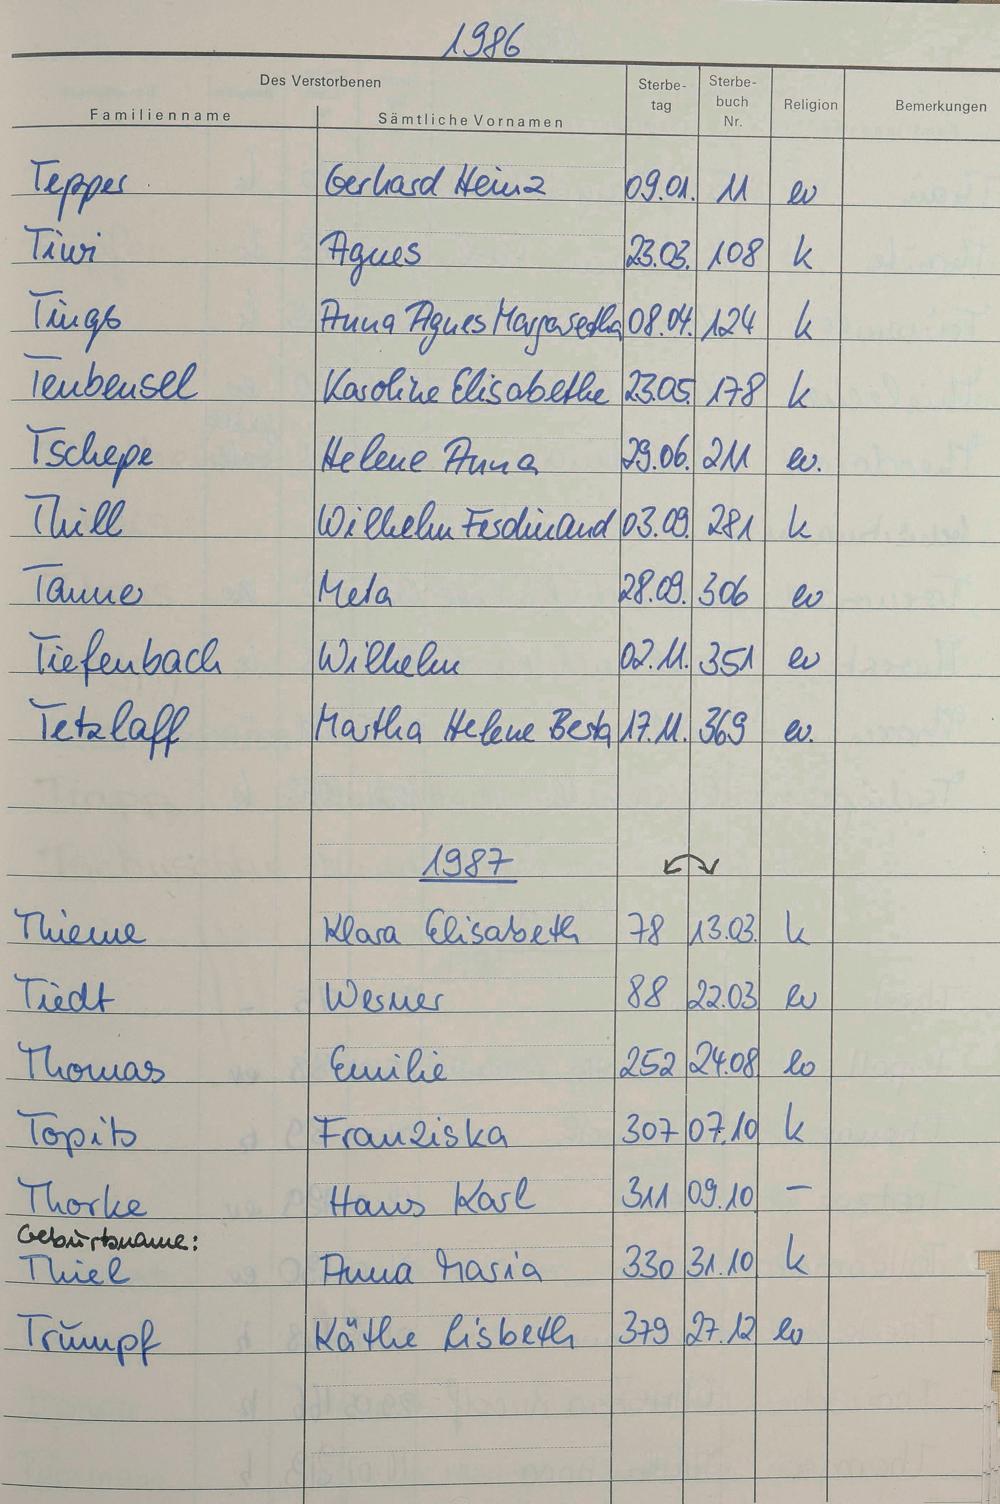 1986
Des Verstorbenen Sterbe- Sterbe-
tag buch Religion Bemerkungen
Familienname Sämtliche Vornamen Nr.
Tepper Gerhard Heinz 09.01. 11 ev
Tiwi Agnes 23.03. 108 k
Tings Anna Agnes Margaretha 08.04. 124 k
Teubensel Karoline Elisabethe 23.05. 178 k
Tschepe Helene Anna 29.06. 211 ev.
Thill Wilhelm Ferdinand 03.09. 281 k
Tanne Meta 28.09. 306 ev
Tiefenbach Wilhelm 02.11. 351 ev
Tetzlaff Martha Helene Berta 17.11. 369 ev.
1987
Thieme Klara Elisabeth 78 13.03. k
Tiedt Werner 88 22.03 ev
Thomas Emilie 252 24.08 ev
Topits Franziska 307 07.10 k
Thorke Hans Karl 311 09.10 –
Geburtsname:
Thiel Anna Maria 330 31.10 k
Trumpf Käthe Lisbeth 379 27.12 ev